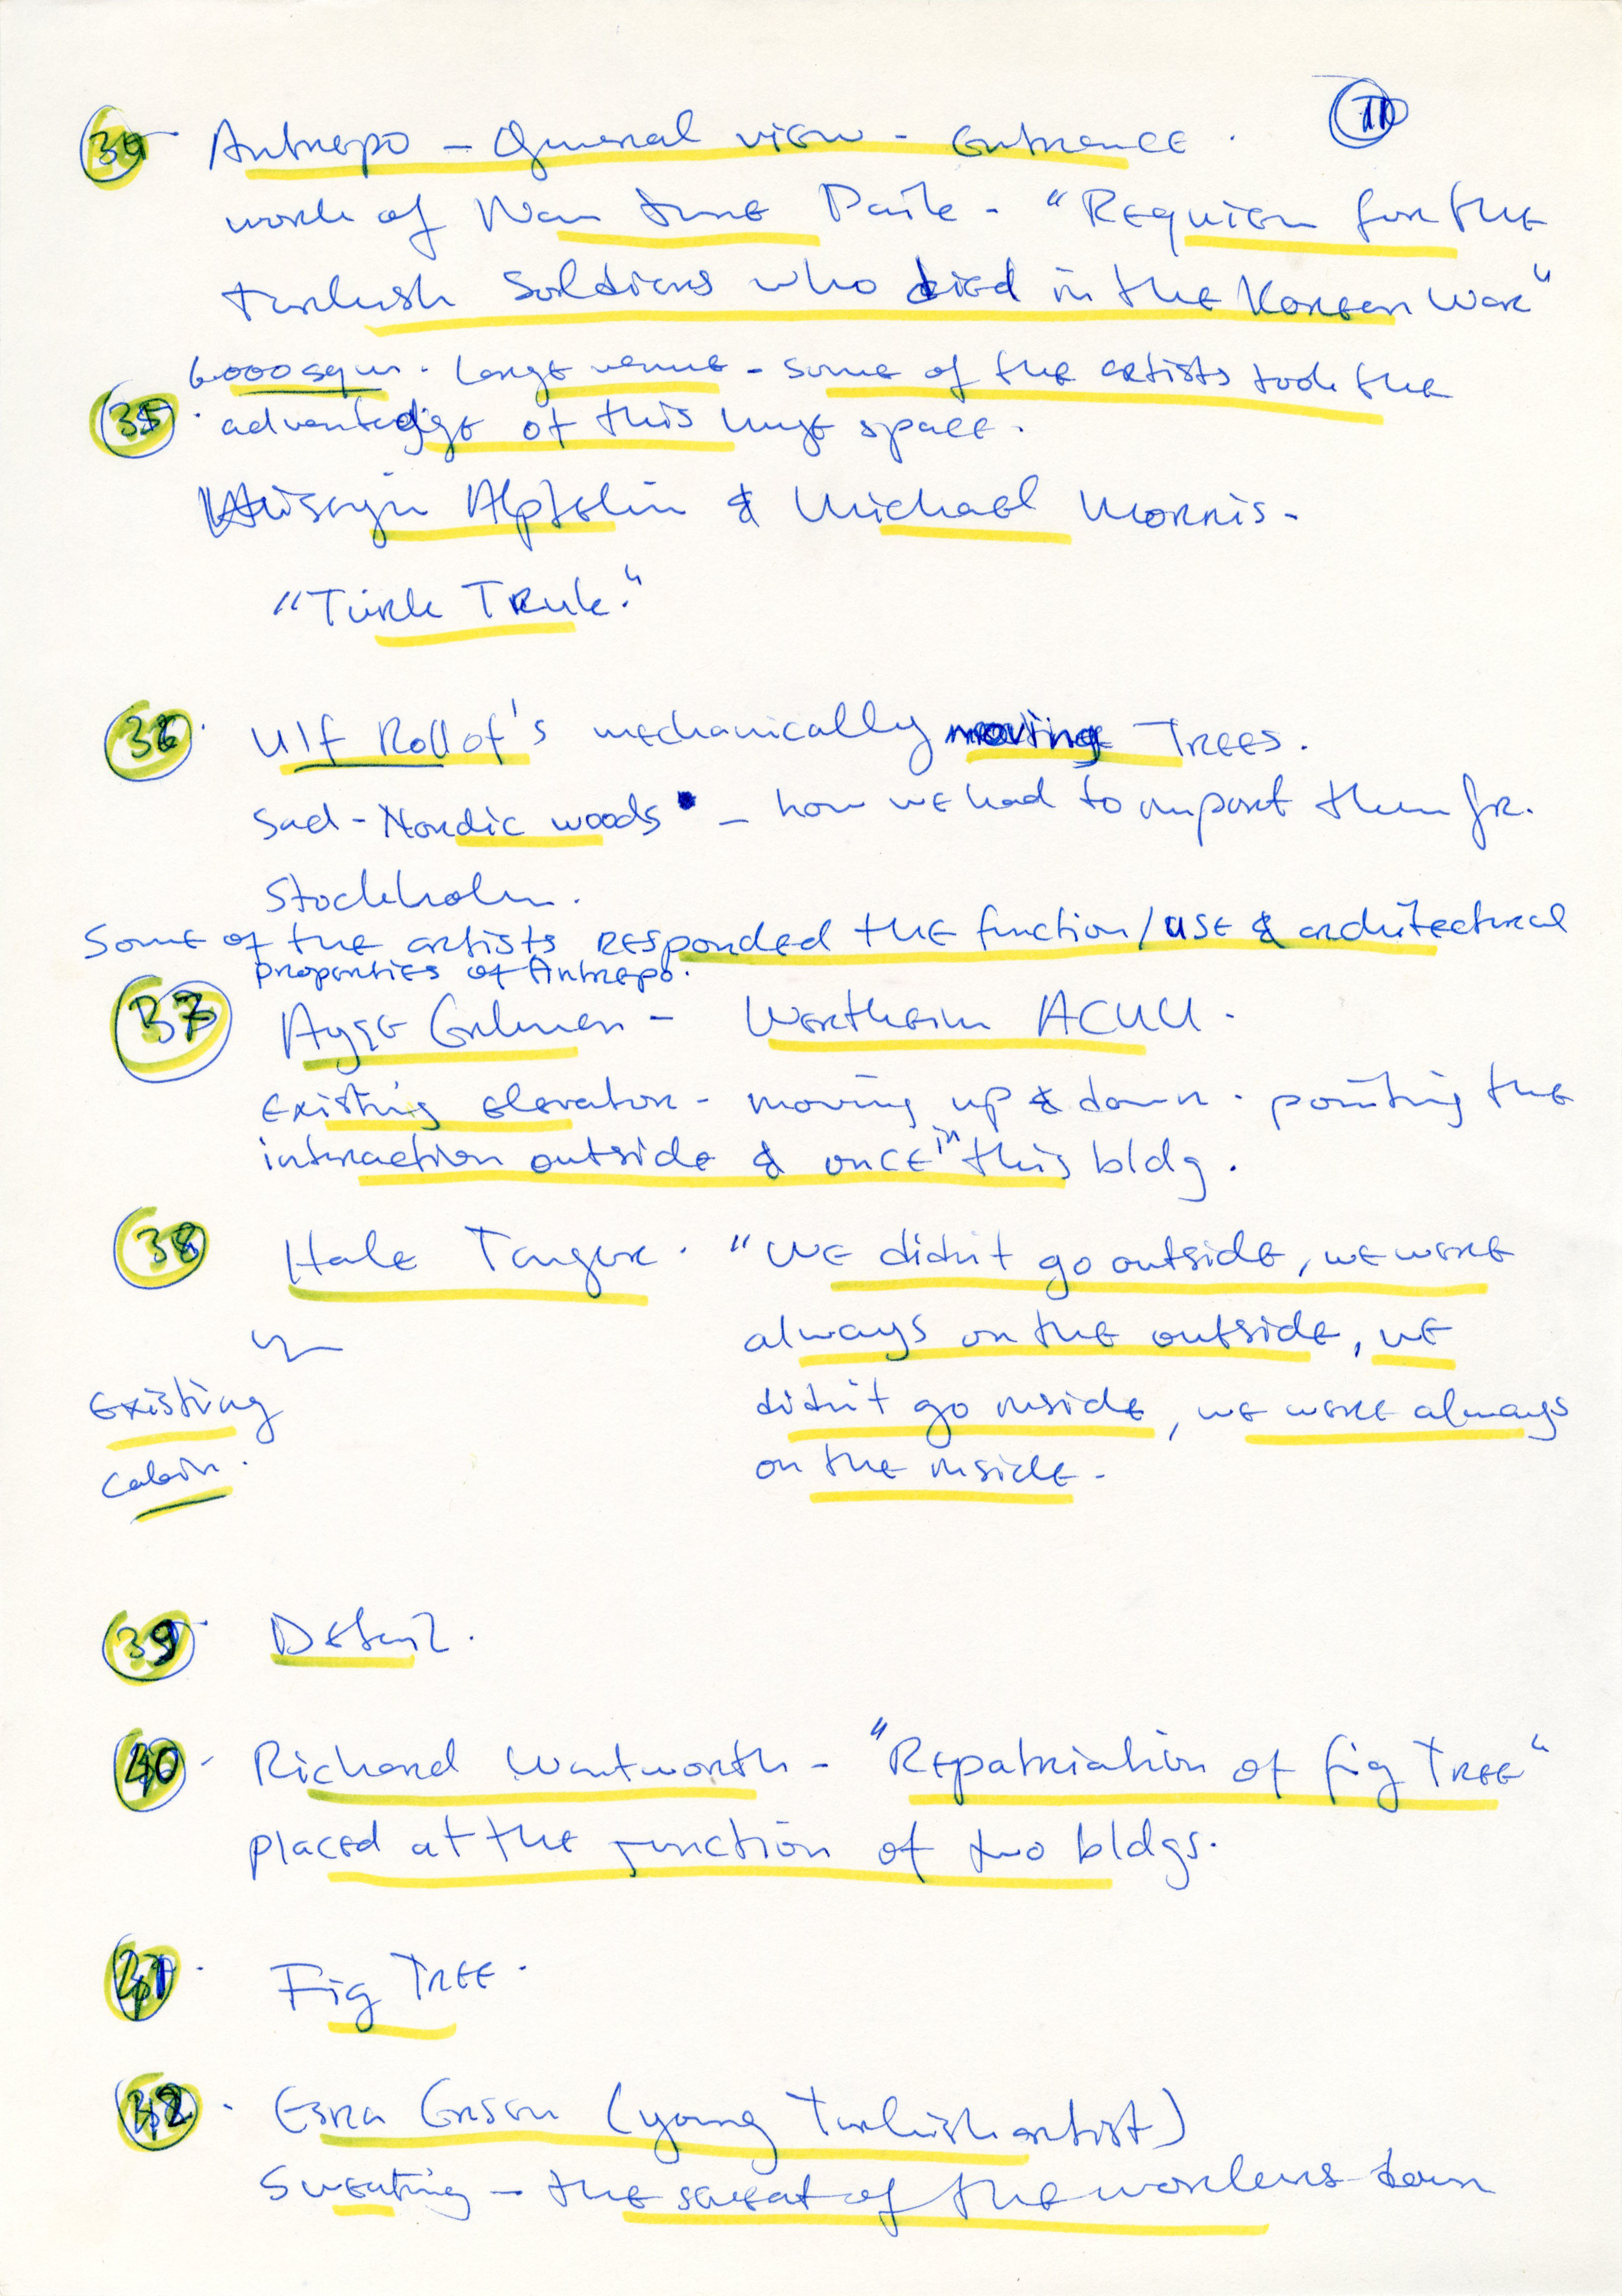 34 Antrepo - General view - Entrance.
work of Nam June Paik - "Requiem for the
Turkish Soldiers who died in the Korean War"
6000 sqm. Large venue - some of the artists took the
35 advantage of this huge space.
Hüseyin Alptekin & Michael Morris -
"Türk Truk."
36. Ulf Rollof's mechanically moving Trees.
Sad - Nordic woods - how we had to import them fr.
Stockholm.
Some of the artists responded the function/use & architectural
properties of Antrepo.
37 Ayşe Erkmen - Wertheim ACUU.
Existing elevator - moving up & down. pointing the
interaction outside & once in this bldg.
38 Hale Tenger. "We didn't go outside, we were
always on the outside, we
Existing
didn't go inside, we were always
cabin.
on the inside -
39. Detail.
40 - Richard Wentworth - "Repatriation of fig Tree"
placed at the junction of two bldgs.
41. Fig Tree.
42. Esra Ersen (young Turkish artist)
Sweating - the sweat of the workers